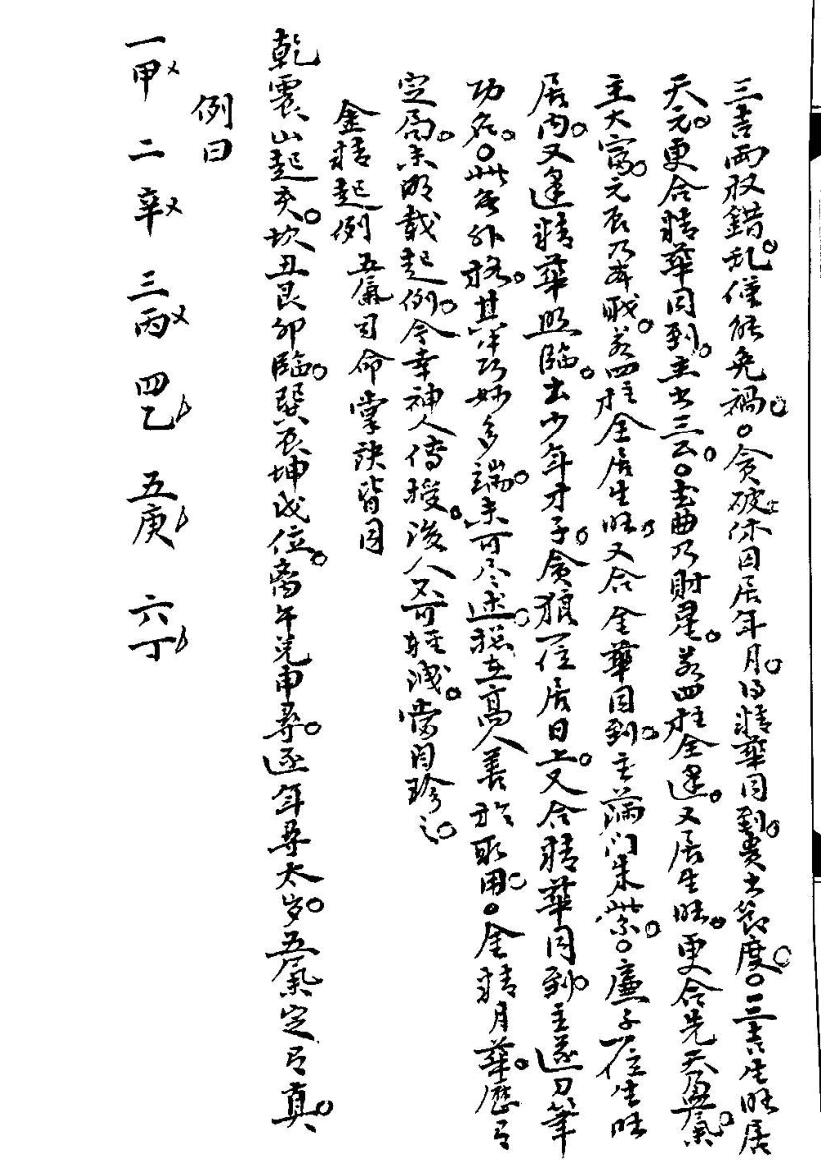 三吉両衩錯乱。僅能免禍。貪破休囚居年月。得精華同到。貴出節度。三吉生旺居
天元。更合精華同到。主出三公。武曲乃財星。若四柱全逢。又居生旺。更合先天盈氣。
主大富。元辰乃本職。若四柱全居生旺。又合金華同到。主滿門朱紫。廉子一位生旺
居内。又逢精華照臨。出少年才子。貪狼一位居日上。又合精華同到。主逐刀筆
功名。此告外格。其中巧妙多端。未可尽述。摠在高人善於取用。金精月華歷有
定局。未明載起例。今幸神人傳授。後人不可輕洩。當自珍之。
金精起例五氣司命掌訣皆同
乾震山起亥。坎丑艮卯臨。巽辰坤戌位。离午兌申尋。逐年尋太岁。五氣定有真。
例曰
一甲 二辛 三丙 四乙 五庚 六丁